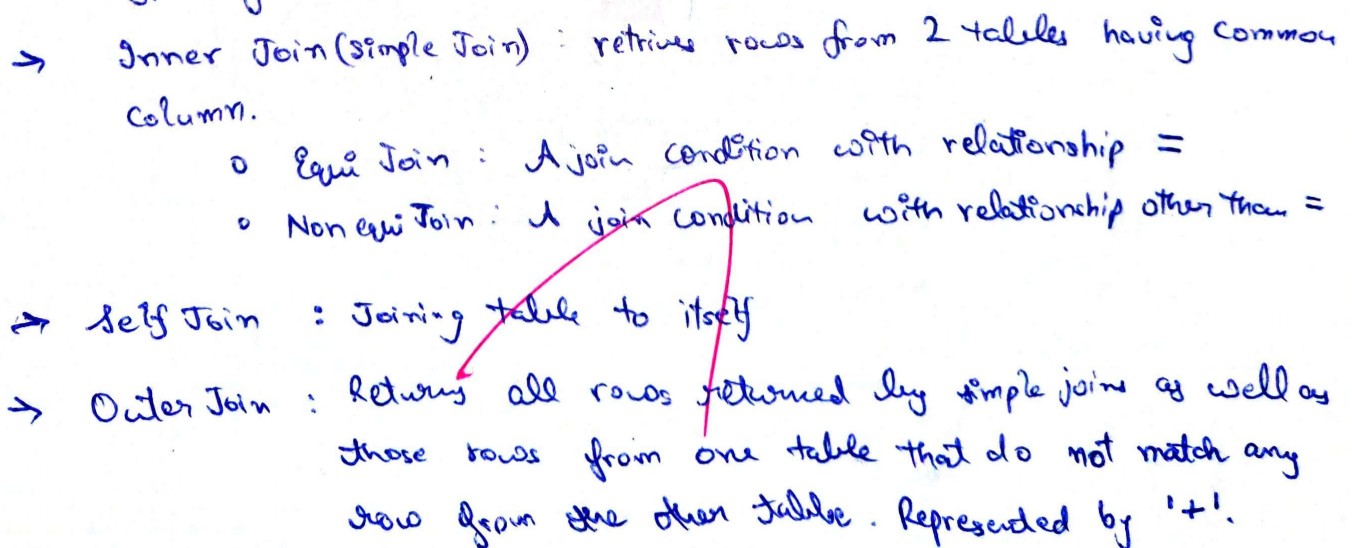 → Inner Join (simple Join) : retrives rows from 2 tables having common
column.
o Equi Join : A join condition with relationship =
o Non equi Join : A join condition with relationship other than =
→ Self Join : Joining table to itself
→ Outer Join : Returns all rows returned by simple joins as well as
those rows from one table that do not match any
row from the other table. Represented by '+'.